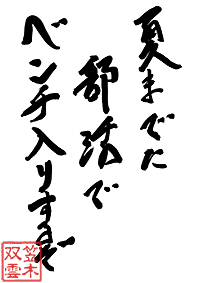 夏までに
部活で
ベンチ入りするぞ
笠木
双雲